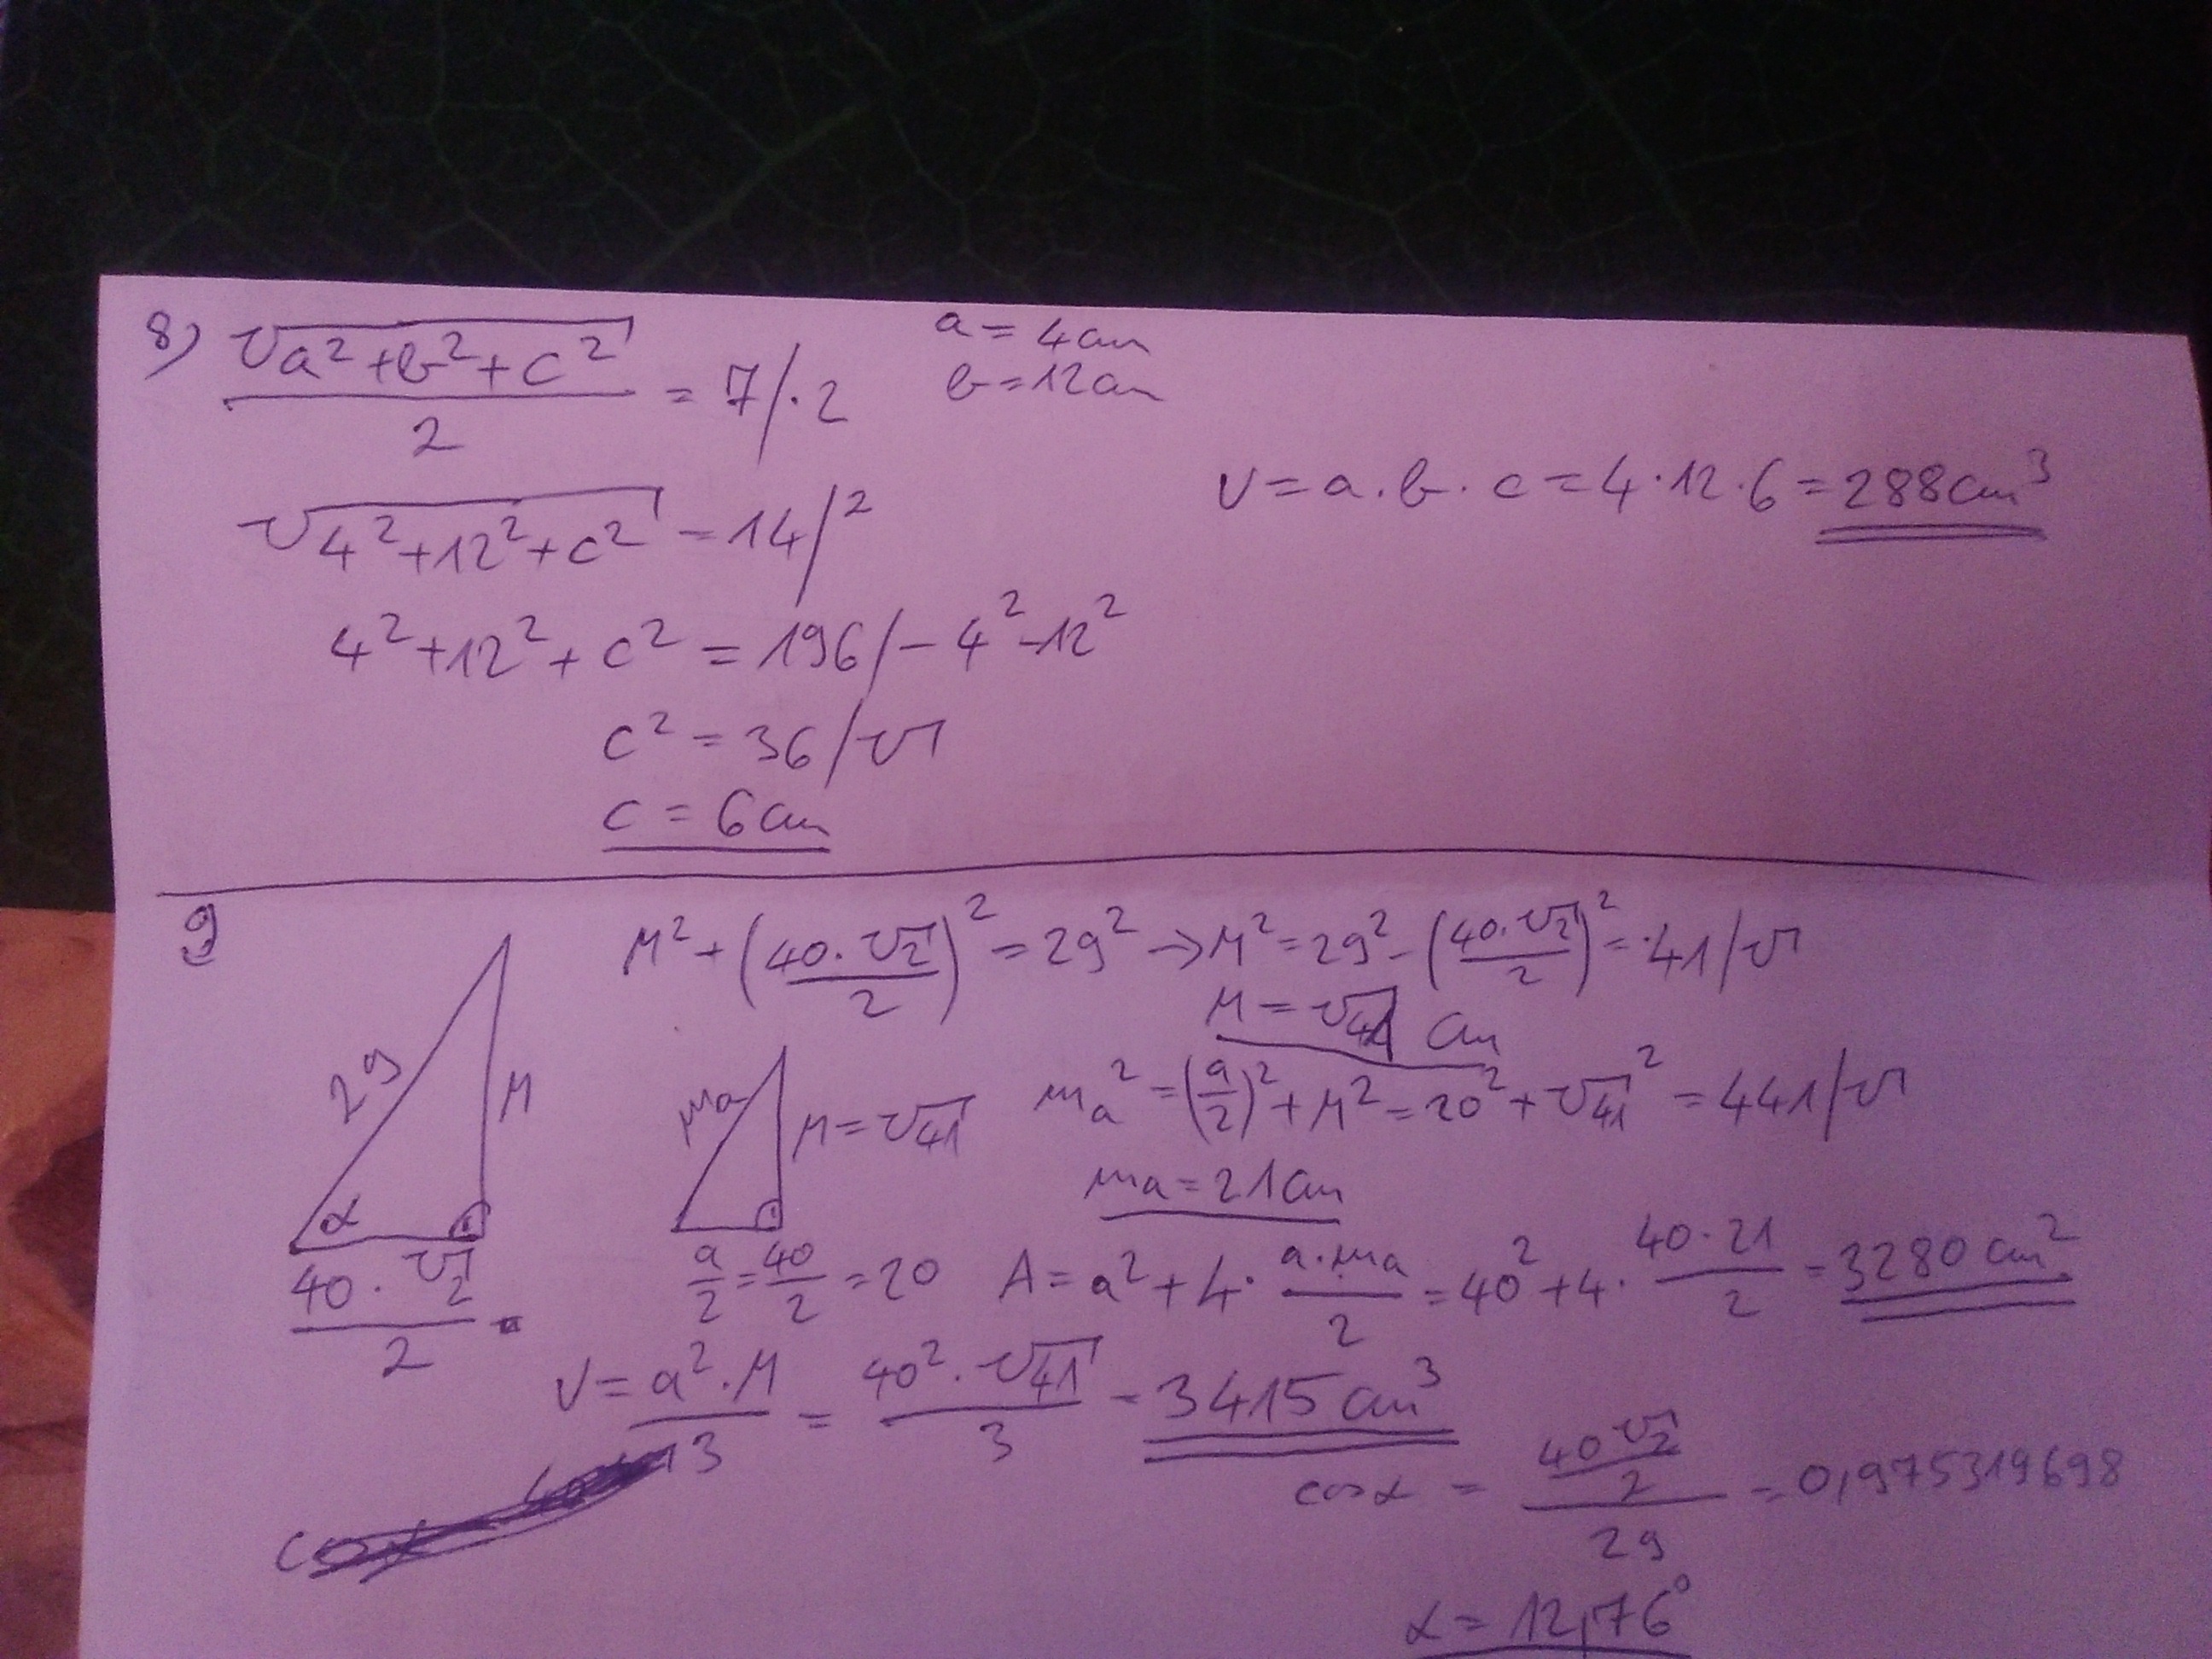 8) √(a²+b²+c²) / 2 = 7 /·2
a = 4cm
b = 12cm
√(4²+12²+c²) = 14 /²
V = a·b·c = 4·12·6 = 288cm³
4²+12²+c² = 196 /-4²-12²
c² = 36 /√
c = 6cm
9
M² + (40·√2 / 2)² = 29² → M² = 29² - (40·√2 / 2)² = 41 /√
M = √41 cm
29
M
α
40·√2 / 2 =
ma
M = √41
a/2 = 40/2 = 20
ma² = (a/2)² + M² = 20² + √41² = 441 /√
ma = 21cm
A = a² + 4· a·ma / 2 = 40² + 4· 40·21 / 2 = 3280 cm²
V = a²·M / 3 = 40²·√41 / 3 = 3415 cm³
cosα = (40√2 / 2) / 29 = 0,975319698
α = 12,76°